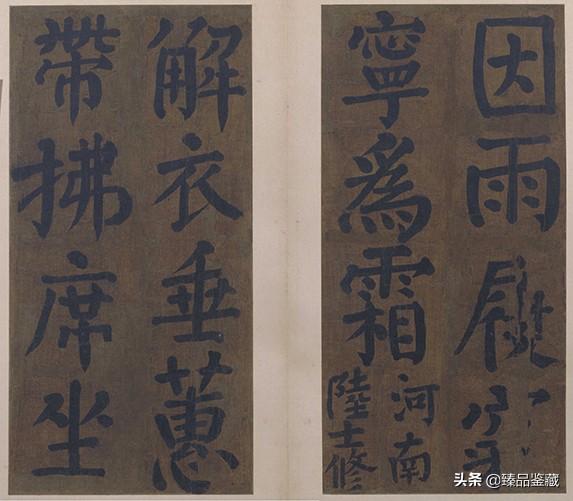 因雨
寧爲霜
河南
陸士修
解衣垂蕙
帶拂席坐
头条 @臻品鉴藏